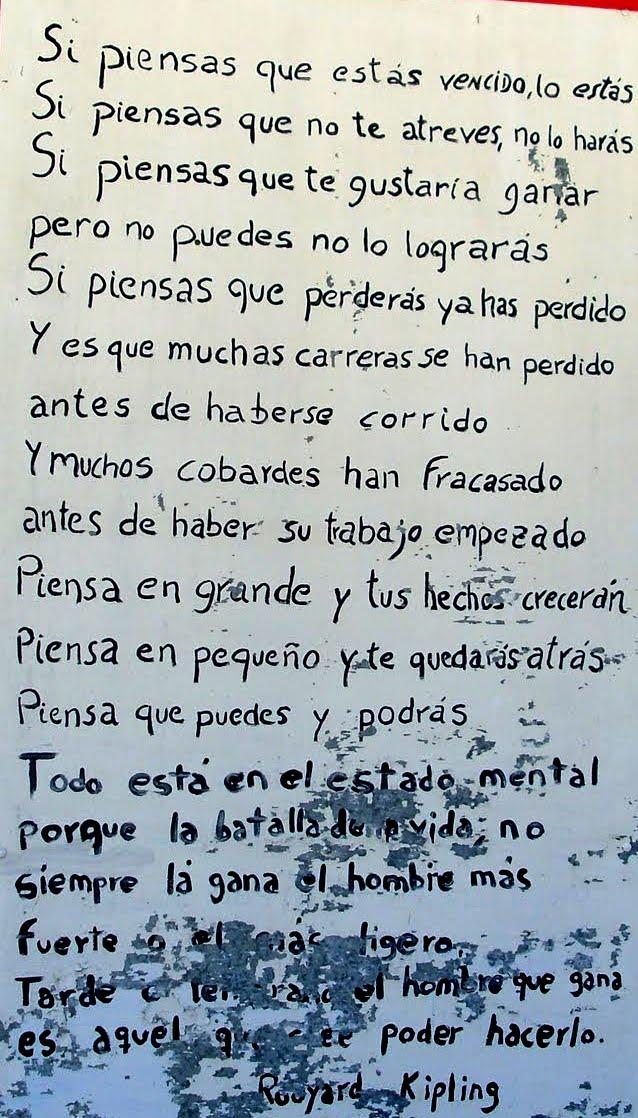 Si piensas que estás vencido, lo estás
Si piensas que no te atreves, no lo harás
Si piensas que te gustaría ganar
pero no puedes no lo lograrás
Si piensas que perderás ya has perdido
Y es que muchas carreras se han perdido
antes de haberse corrido
Y muchos cobardes han fracasado
antes de haber su trabajo empezado
Piensa en grande y tus hechos crecerán
Piensa en pequeño y te quedarás atrás
Piensa que puedes y podrás
Todo está en el estado mental
porque la batalla de la vida, no
siempre la gana el hombre más
fuerte o el más ligero,
Tarde o el hombre que gana
es aquel poder hacerlo.
Rudyard Kipling